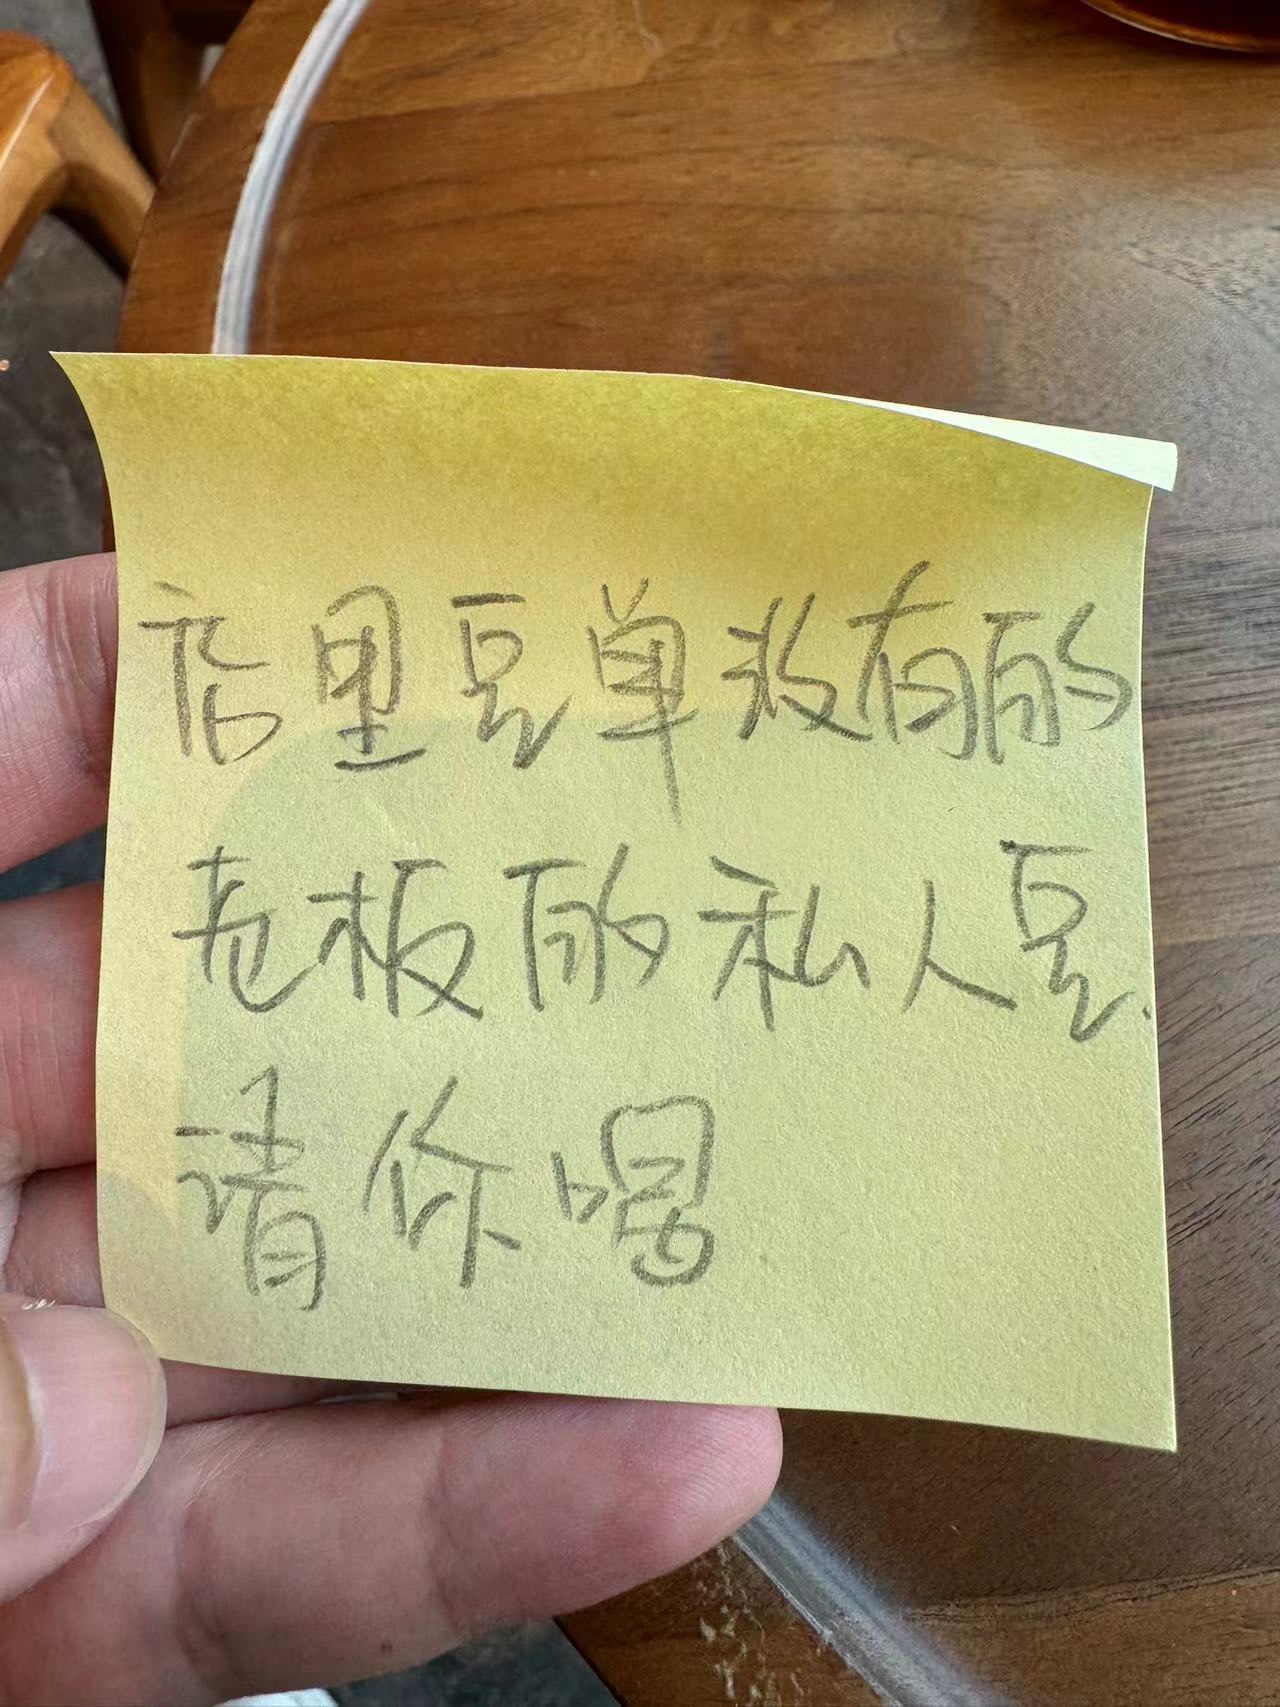 店里豆单没有的
老板的私人豆.
请你喝